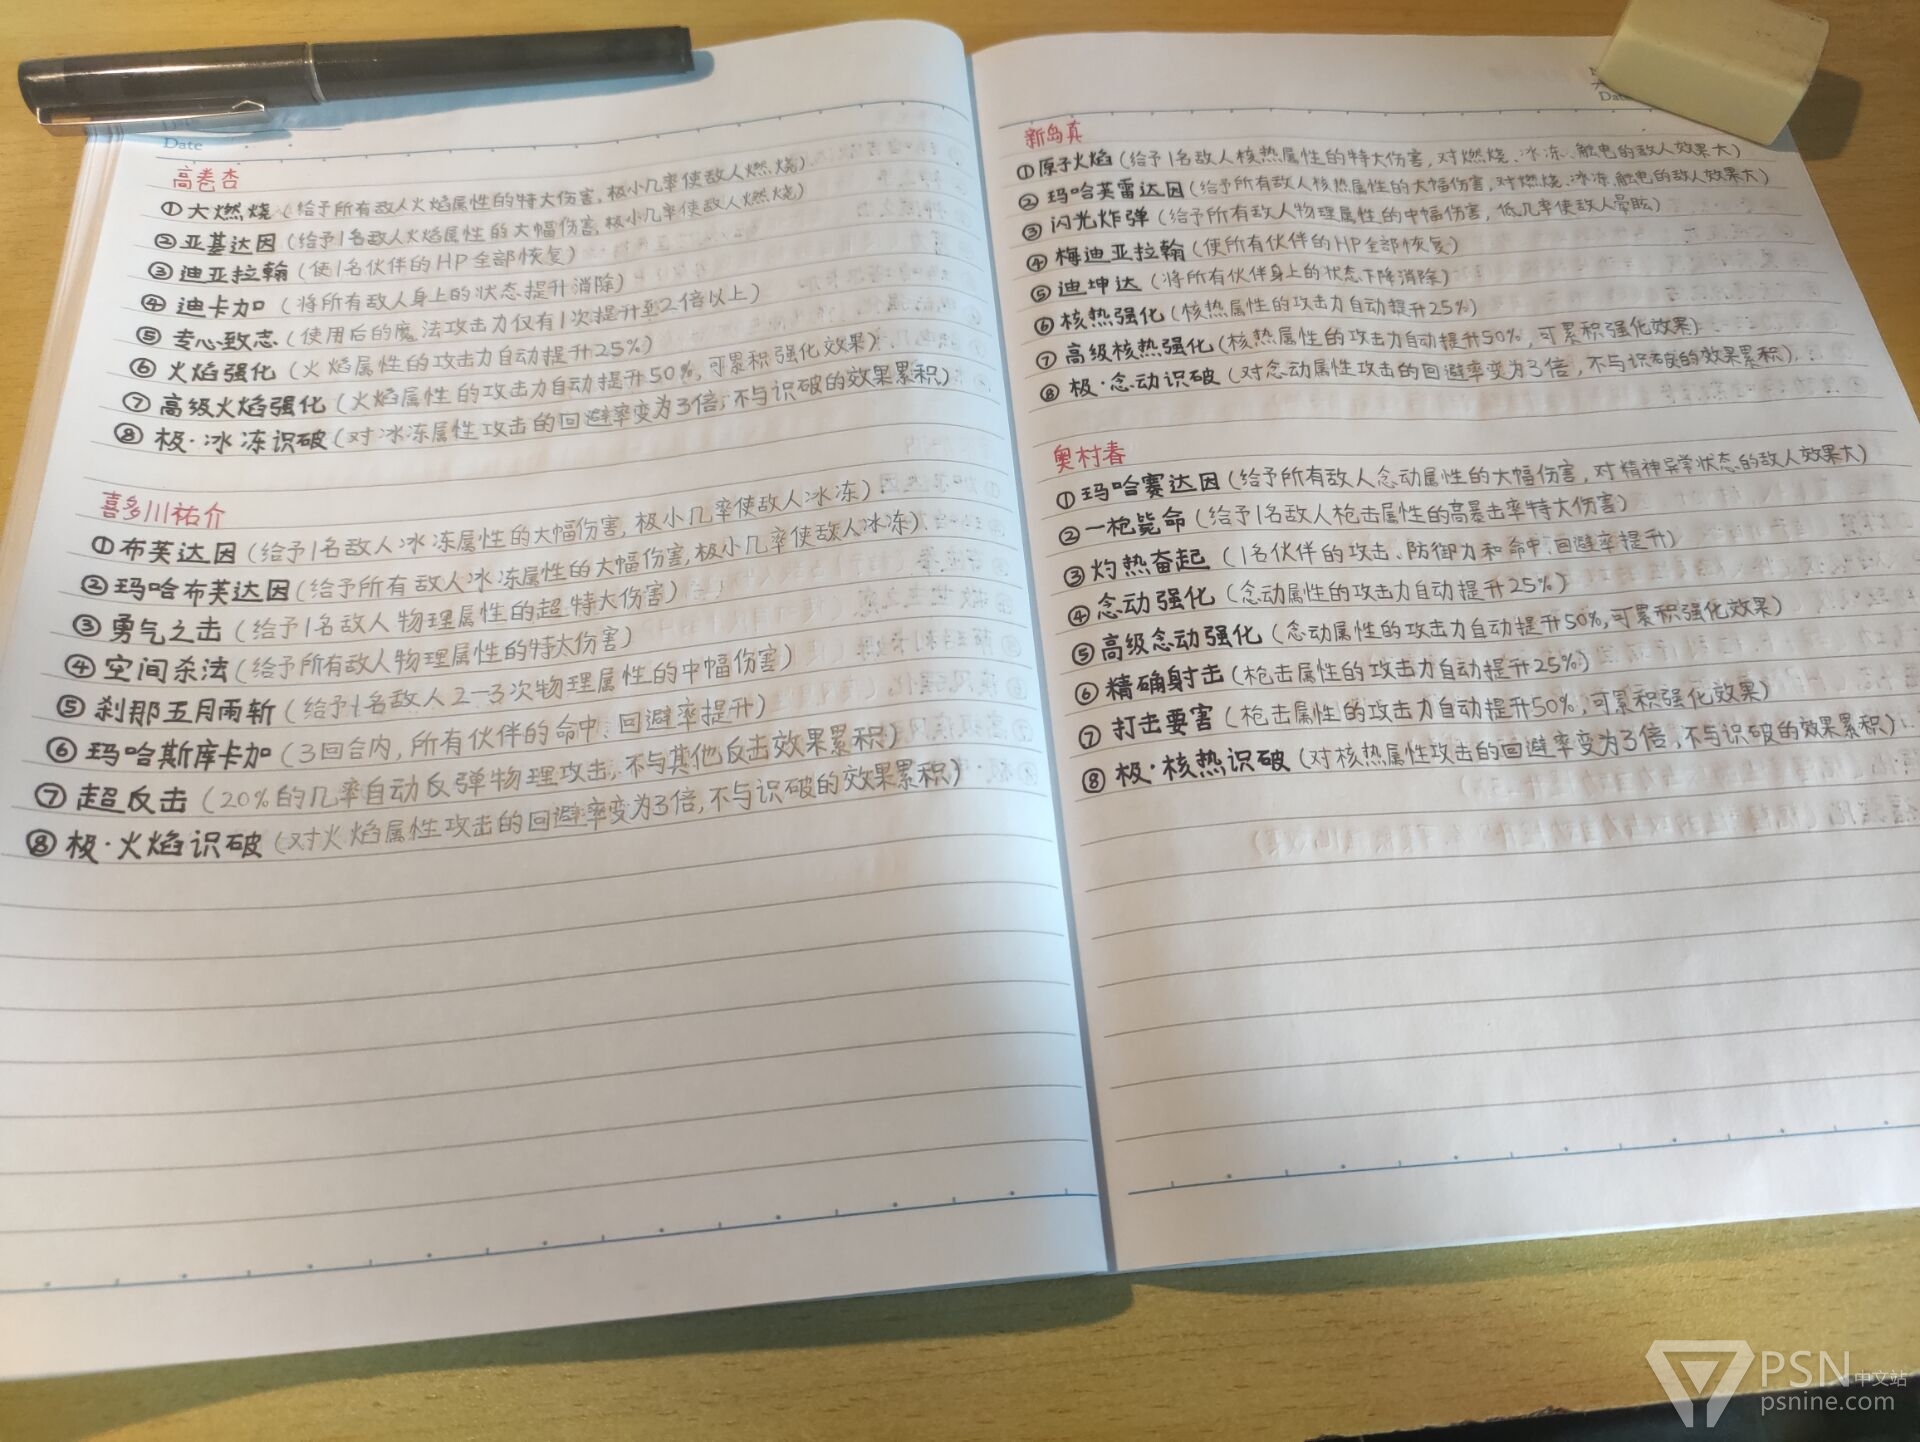 Date
高卷杏
①大燃烧（给予所有敌人火焰属性的特大伤害，极小几率使敌人燃烧）
②亚基达因（给予1名敌人火焰属性的大幅伤害，极小几率使敌人燃烧）
③迪亚拉翰（使1名伙伴的HP全部恢复）
④迪卡加（将所有敌人身上的状态提升消除）
⑤专心致志（使用后的魔法攻击力仅有1次提升至2倍以上）
⑥火焰强化（火焰属性的攻击力自动提升25%）
⑦高级火焰强化（火焰属性的攻击力自动提升50%，可累积强化效果）
⑧极·冰冻识破（对冰冻属性攻击的回避率变为3倍，不与识破的效果累积）
喜多川祐介
①布芙达因（给予1名敌人冰冻属性的大幅伤害，极小几率使敌人冰冻）
②玛哈布芙达因（给予所有敌人冰冻属性的大幅伤害，极小几率使敌人冰冻）
③勇气之击（给予1名敌人物理属性的超特大伤害）
④空间杀法（给予所有敌人物理属性的特大伤害）
⑤刹那五月雨斩（给予1名敌人2-3次物理属性的中幅伤害）
⑥玛哈斯库卡加（3回合内，所有伙伴的命中、回避率提升）
⑦超反击（20%的几率自动反弹物理攻击，不与其他反击效果累积）
⑧极·火焰识破（对火焰属性攻击的回避率变为3倍，不与识破的效果累积）
Date
新岛真
①原子火焰（给予1名敌人核热属性的特大伤害，对燃烧、冰冻、触电的敌人效果大）
②玛哈芙雷达因（给予所有敌人核热属性的大幅伤害，对燃烧、冰冻、触电的敌人效果大）
③闪光炸弹（给予所有敌人物理属性的中幅伤害，低几率使敌人晕眩）
④梅迪亚拉翰（使所有伙伴的HP全部恢复）
⑤迪坤达（将所有伙伴身上的状态下降消除）
⑥核热强化（核热属性的攻击力自动提升25%）
⑦高级核热强化（核热属性的攻击力自动提升50%，可累积强化效果）
⑧极·念动识破（对念动属性攻击的回避率变为3倍，不与识破的效果累积）
奥村春
①玛哈赛达因（给予所有敌人念动属性的大幅伤害，对精神异常状态的敌人效果大）
②一枪毙命（给予1名敌人枪击属性的高暴击率特大伤害）
③灼热奋起（1名伙伴的攻击、防御力和命中、回避率提升）
④念动强化（念动属性的攻击力自动提升25%）
⑤高级念动强化（念动属性的攻击力自动提升50%，可累积强化效果）
⑥精确射击（枪击属性的攻击力自动提升25%）
⑦打击要害（枪击属性的攻击力自动提升50%，可累积强化效果）
⑧极·核热识破（对核热属性攻击的回避率变为3倍，不与识破的效果累积）
PSN中文站
psnine.com